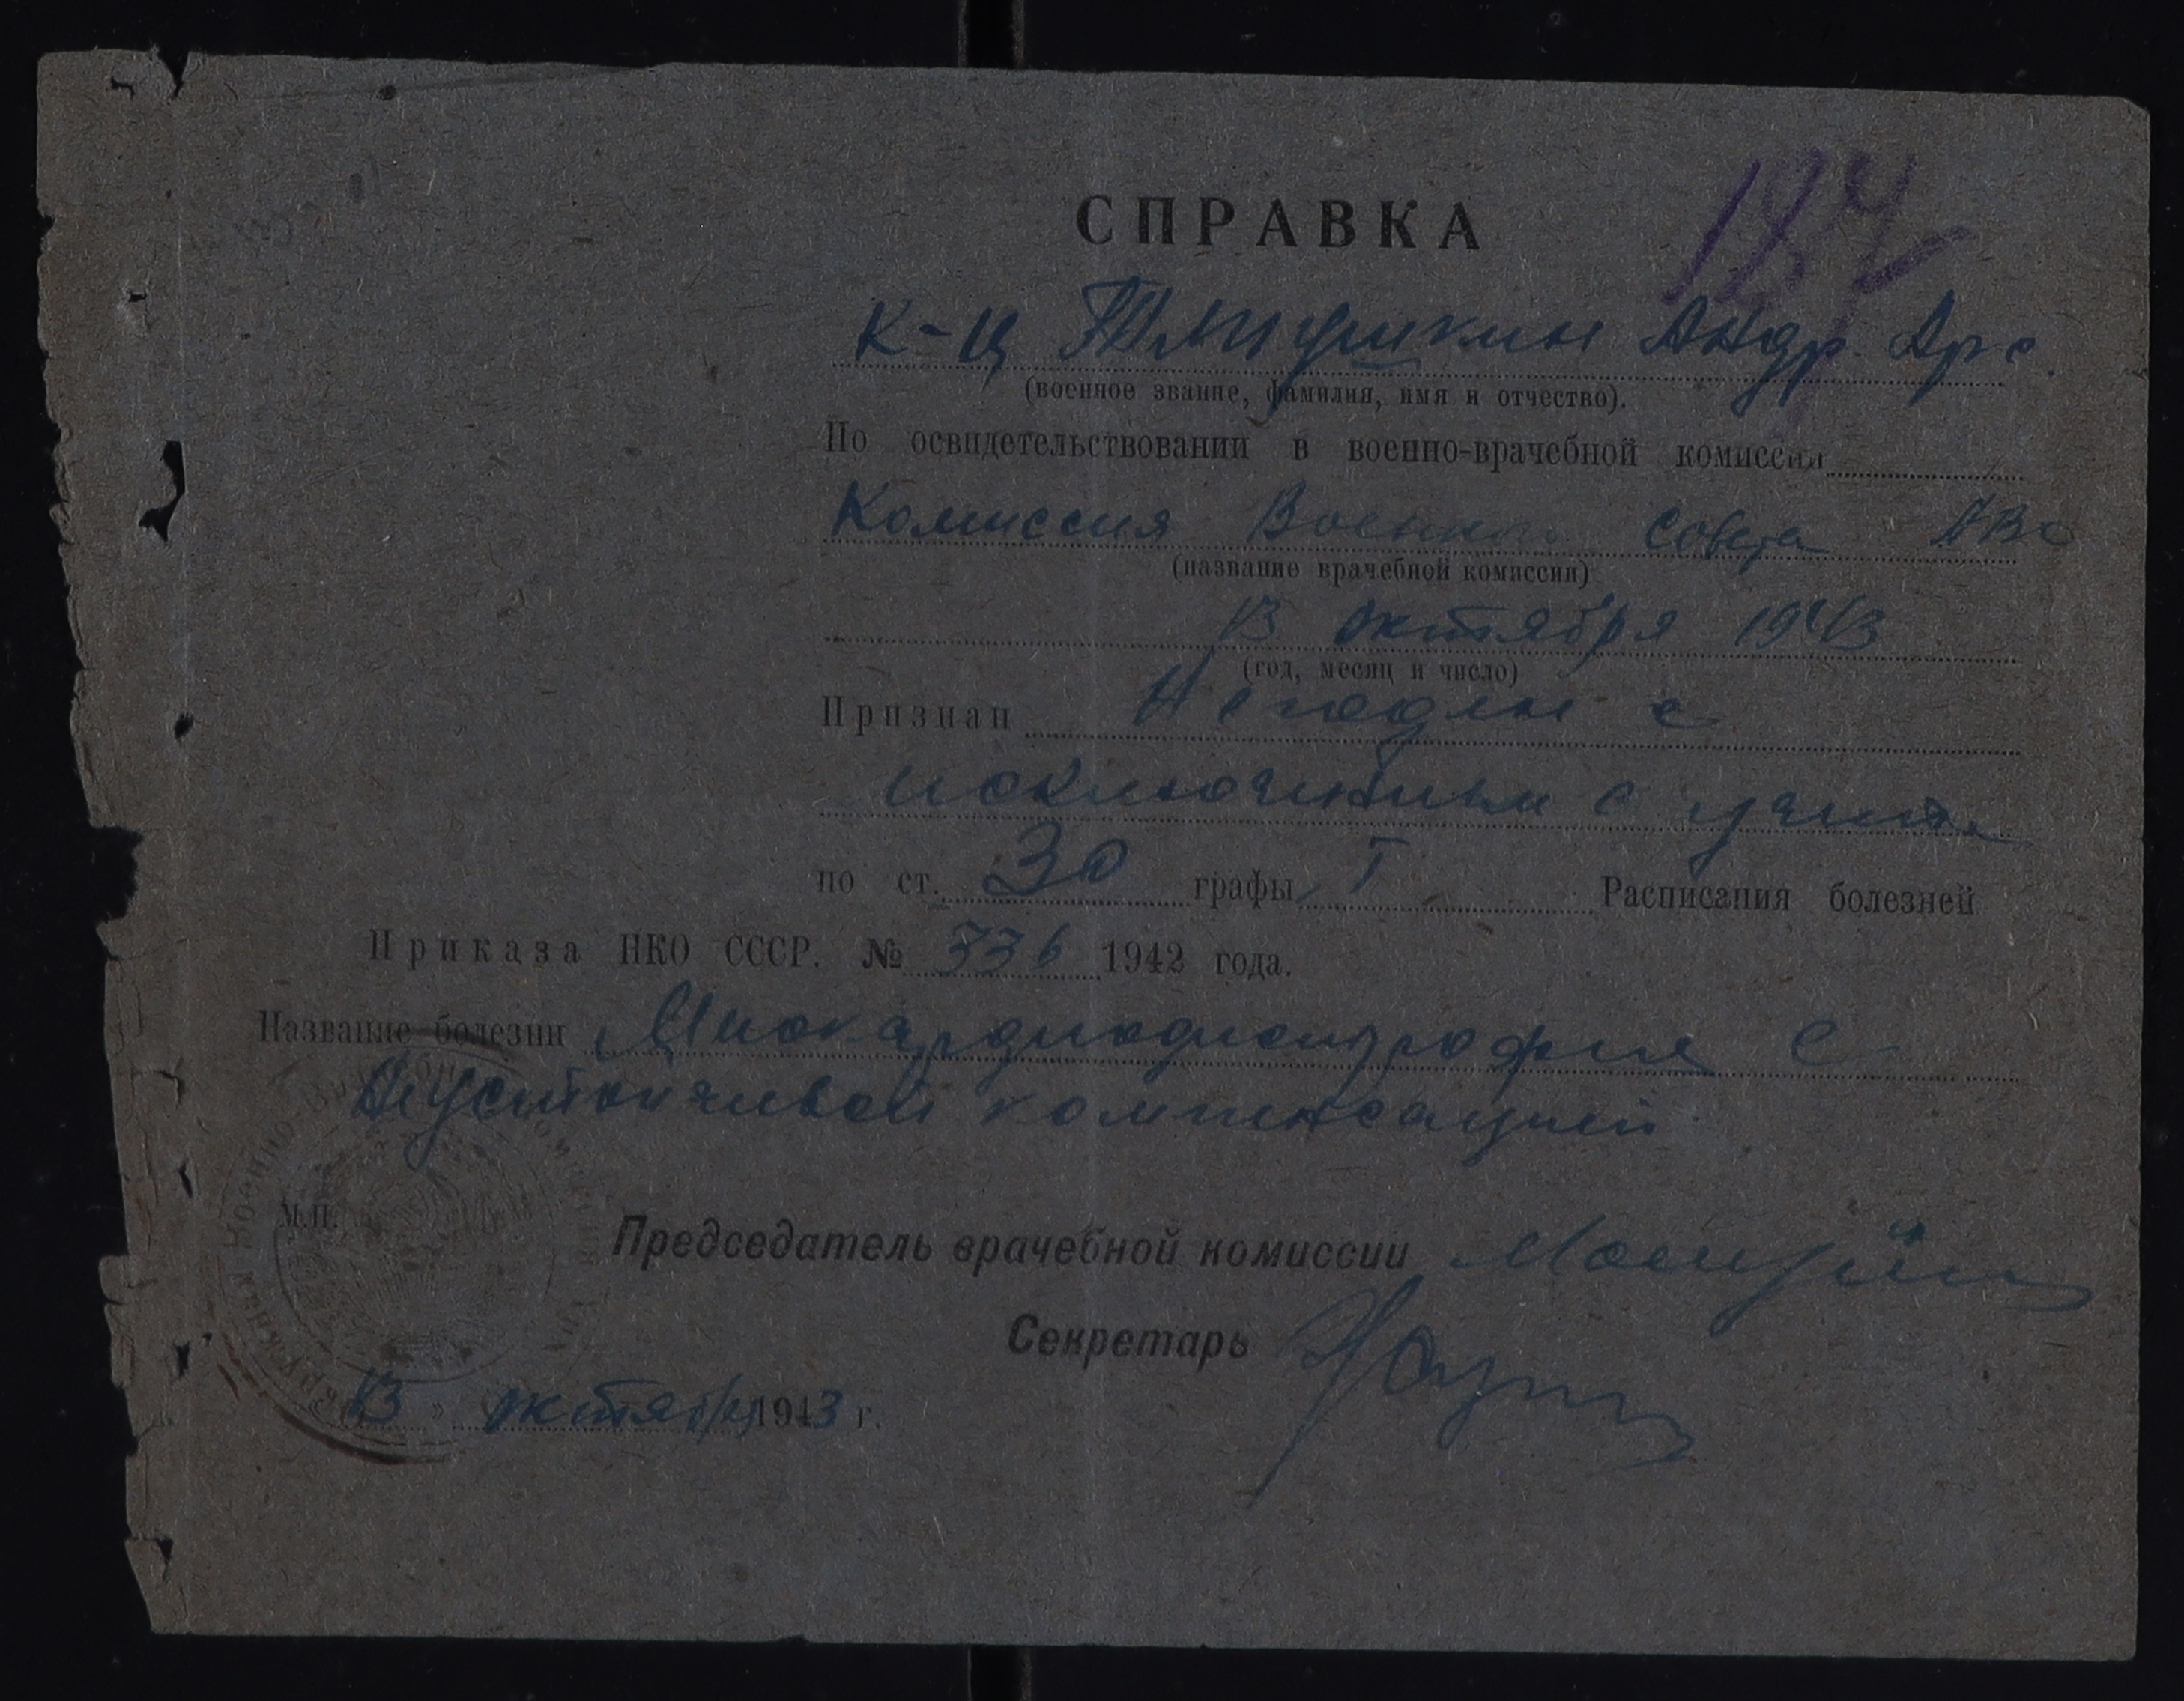 187
СПРАВКА
К-ц Андр. Арс.
(военное звание, фамилия, имя и отчество).
По освидетельствовании в военно-врачебной комиссии
Комиссия Военного Совета
(название врачебной комиссии)
13 октября 1943
(год, месяц и число)
Признан Негодны с
исключением с учета
по ст. 30 графы I Расписания болезней
Приказа НКО СССР. № 336 1942 года.
Название болезни Миокардиодистрофия с
неустойчивой компенсацией
М.П.
Председатель врачебной комиссии
Секретарь
13 » октября 1943 г.